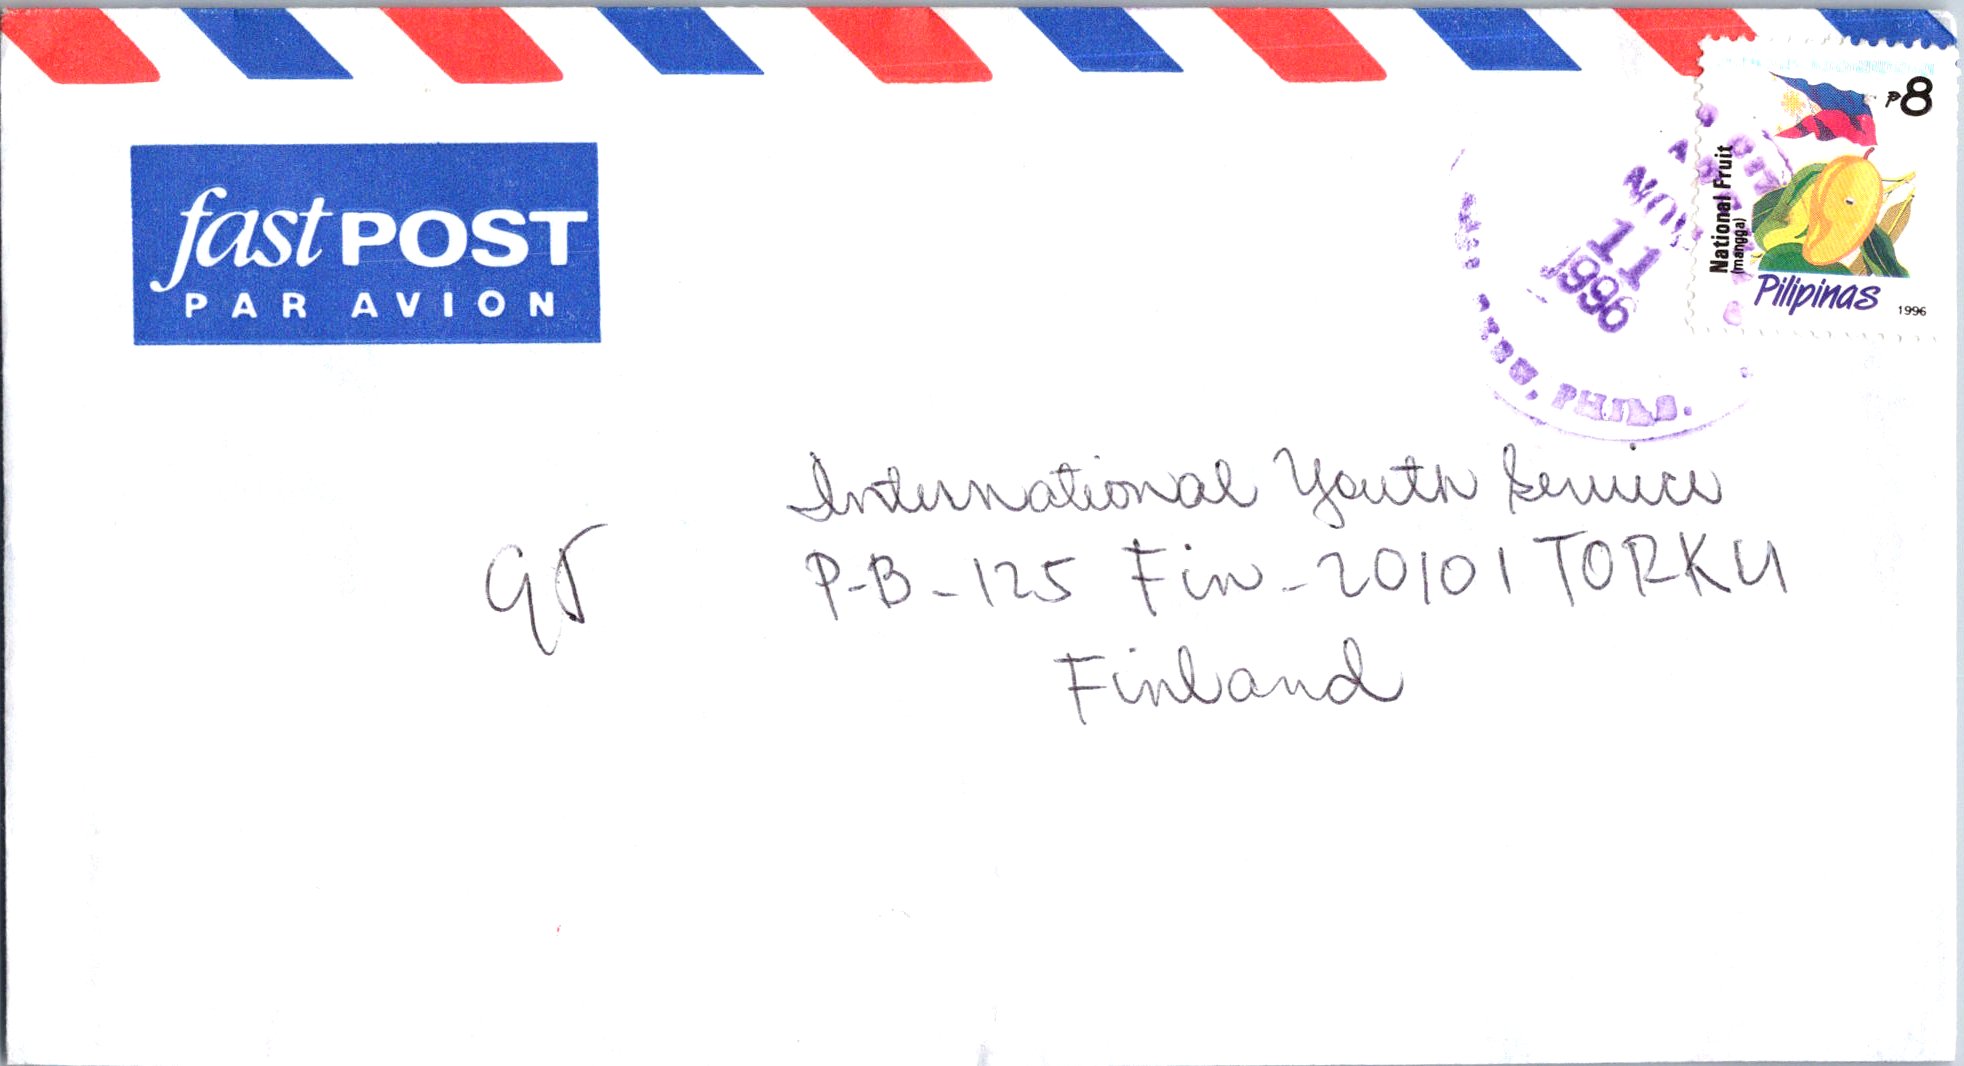 fast POST
PAR AVION
₱8
National Fruit
(mangga)
Pilipinas
1996
NOV
11
1996
PHILS.
International Youth Service
P-B-125 Fin-20101 TORKU
Finland